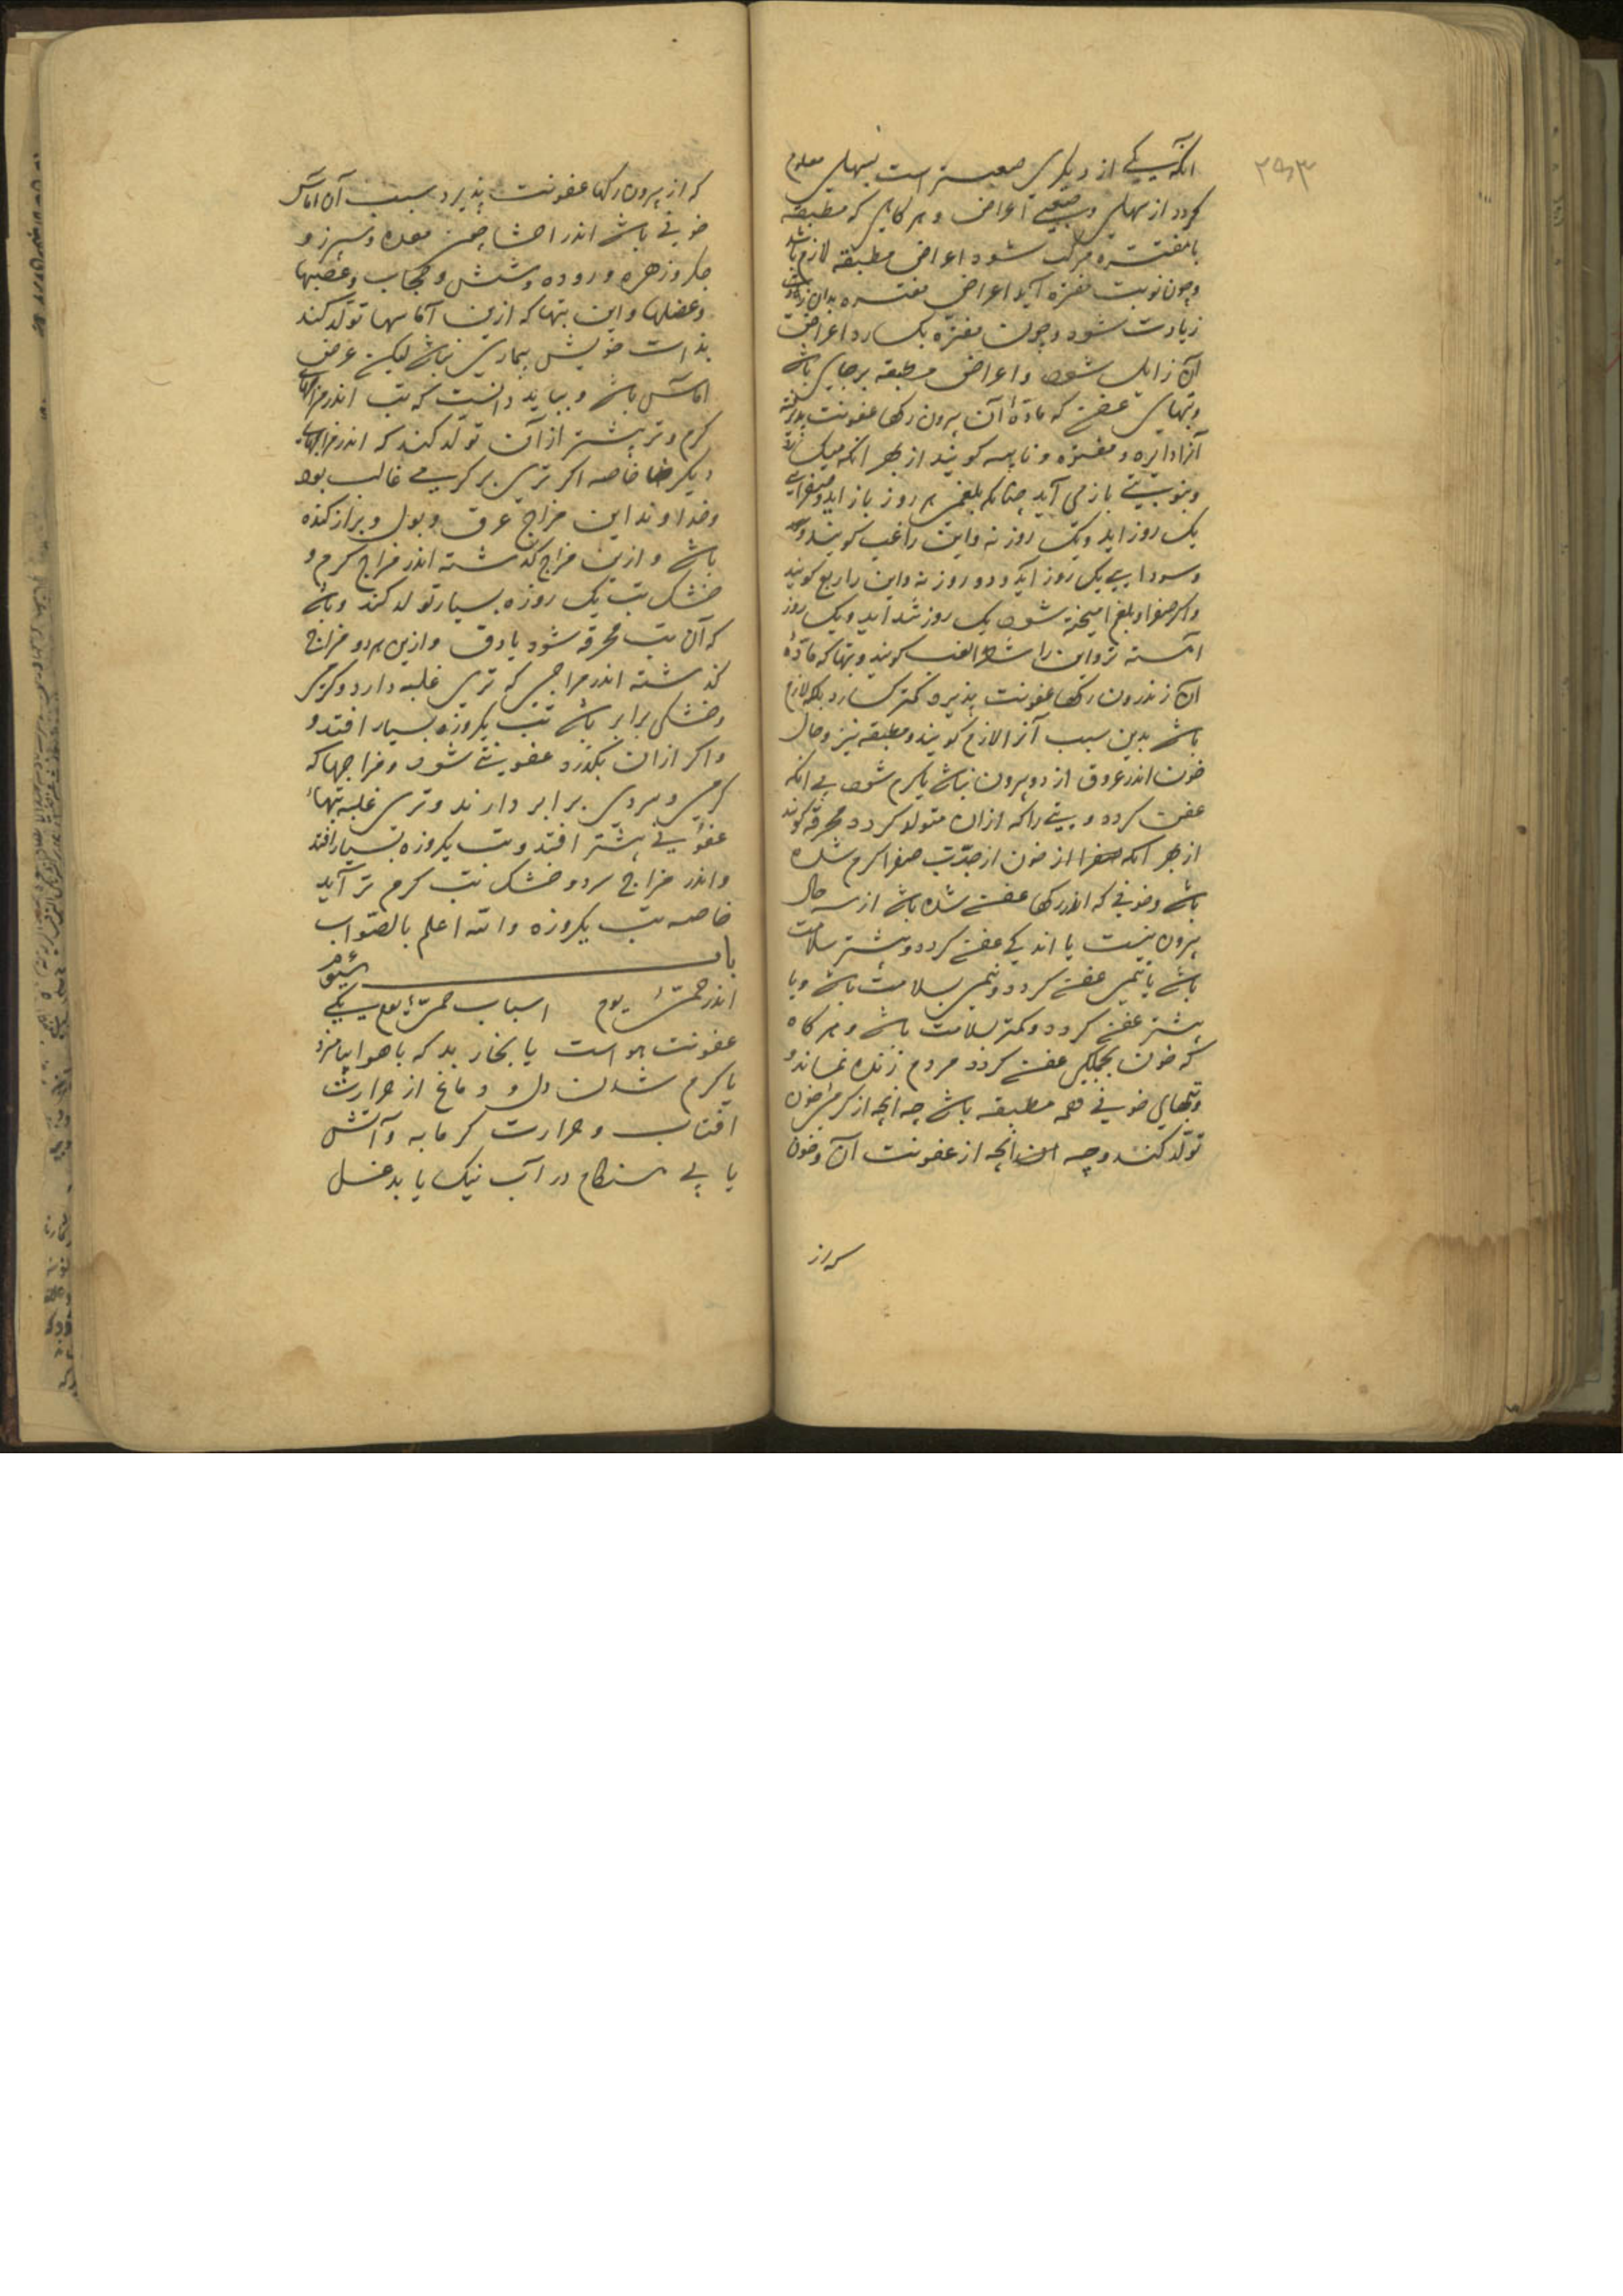 ۲۹۳
انکه یکی از دیکری صعبتر است بسهلی معلوم
کردد از سهلی و صعبی اعراض و هر کاهی که مطبقه
با مفتره مرکب شود اعراض مطبقه لازم باشد
و چون نوبت مفتره آید اعراض مفتره بدان
زیادت شود و چون مفتره بکسارد اعراض
آن زایل شود و اعراض مطبقه برجای باشد
و تبهای عفن که مادۀ آن بیرون رکها عفونت
آنرا دایره و مفتره و نایبه کویند از بهر انکه
و بنوبتی باز می آید چنانکه بلغمی هر روز باز اید و صفرایی
یک روز اید و یک روز نه و این را غب کویند
و سودایی یک روز اید و دو روز نه و این را ربع کویند
و اکر صفرا و بلغم امیخته شود یک روز شد اید و یک روز
آهسته تر و این را شطر الغب کویند و تبها که مادۀ
آن اندرون رکها عفونت پذیرد کمتر کسارد بلکه لازم
باشد بدین سبب آنرا لازم کویند و مطبقه نیز و حال
خون اندر عروق از دو بیرون نباشد یا کرم شود بی انکه
عفن کردد و تبی را که ازان متولد کردد محرقه کویند
از بهر انکه از خون از حدّت صفرا کرم شده
باشد و خونی که اندر رکها عفن شده باشد از سه حال
بیرون نیست یا اندکی عفن کردد و بیشتر سلامت
باشد یا نیمی عفن کردد و نیمی بسلامت باشد و یا
بیشتر عفن کردد و کمتر بسلامت باشد و هر کاه
که خون بجملکی عفن کردد مردم زنده نماند و
و تبهای خونی همه مطبقه باشد چه آنچه از کرمی خون
تولد کند و چه آنچه از عفونت آن و خون
که از
که از بیرون رکها عفونت پذیرد سبب آن اماس
خونی باشد اندر احشا چون معده و سپرز و
جکر و زهره و روده و شش و حجاب و عصبها
و عضلها و این تبها که ازین آماسها تولد کند
بذات خویش بیماری نباشد لیکن عرض
اماس باشد و بباید دانست که تب اندر
کرم و تر بیشتر از آن تولد کند که اندر
دیکر خاصه اکر تری بر کرمی غالب بود
و خداوند این مزاج عرق و بول و براز کنده
باشد و ازین مزاج کذشته اندر مزاج کرم و
خشک تب یک روزه بسیار تولد کند و باشد
که آن تب محرقه شود یا دق و ازین هر دو مزاج
کذشته اندر مزاجی که تری غلبه دارد و کرمی
و خشکی برابر باشد تب یکروزه بسیار افتد و
و اکر ازان بکذرد عفونتی شود و مزاجها که
کرمی و سردی برابر دارند و تری غلبه تبهاء
عفونی بیشتر افتد و تب یکروزه بسیار افتد
و اندر مزاج سرد و خشک تب کرم تر آید
خاصه تب یکروزه والله اعلم بالصواب
باب سیوم
اندر حمی یوم اسباب حمی یوم یکی
عفونت هوا است یا بخار بد که با هوا بیامیزد
یا کرم شدن دل و دماغ از حرارت
افتاب و حرارت کرمابه و آتش
یا بی هنکام در آب نیک یا بد غسل